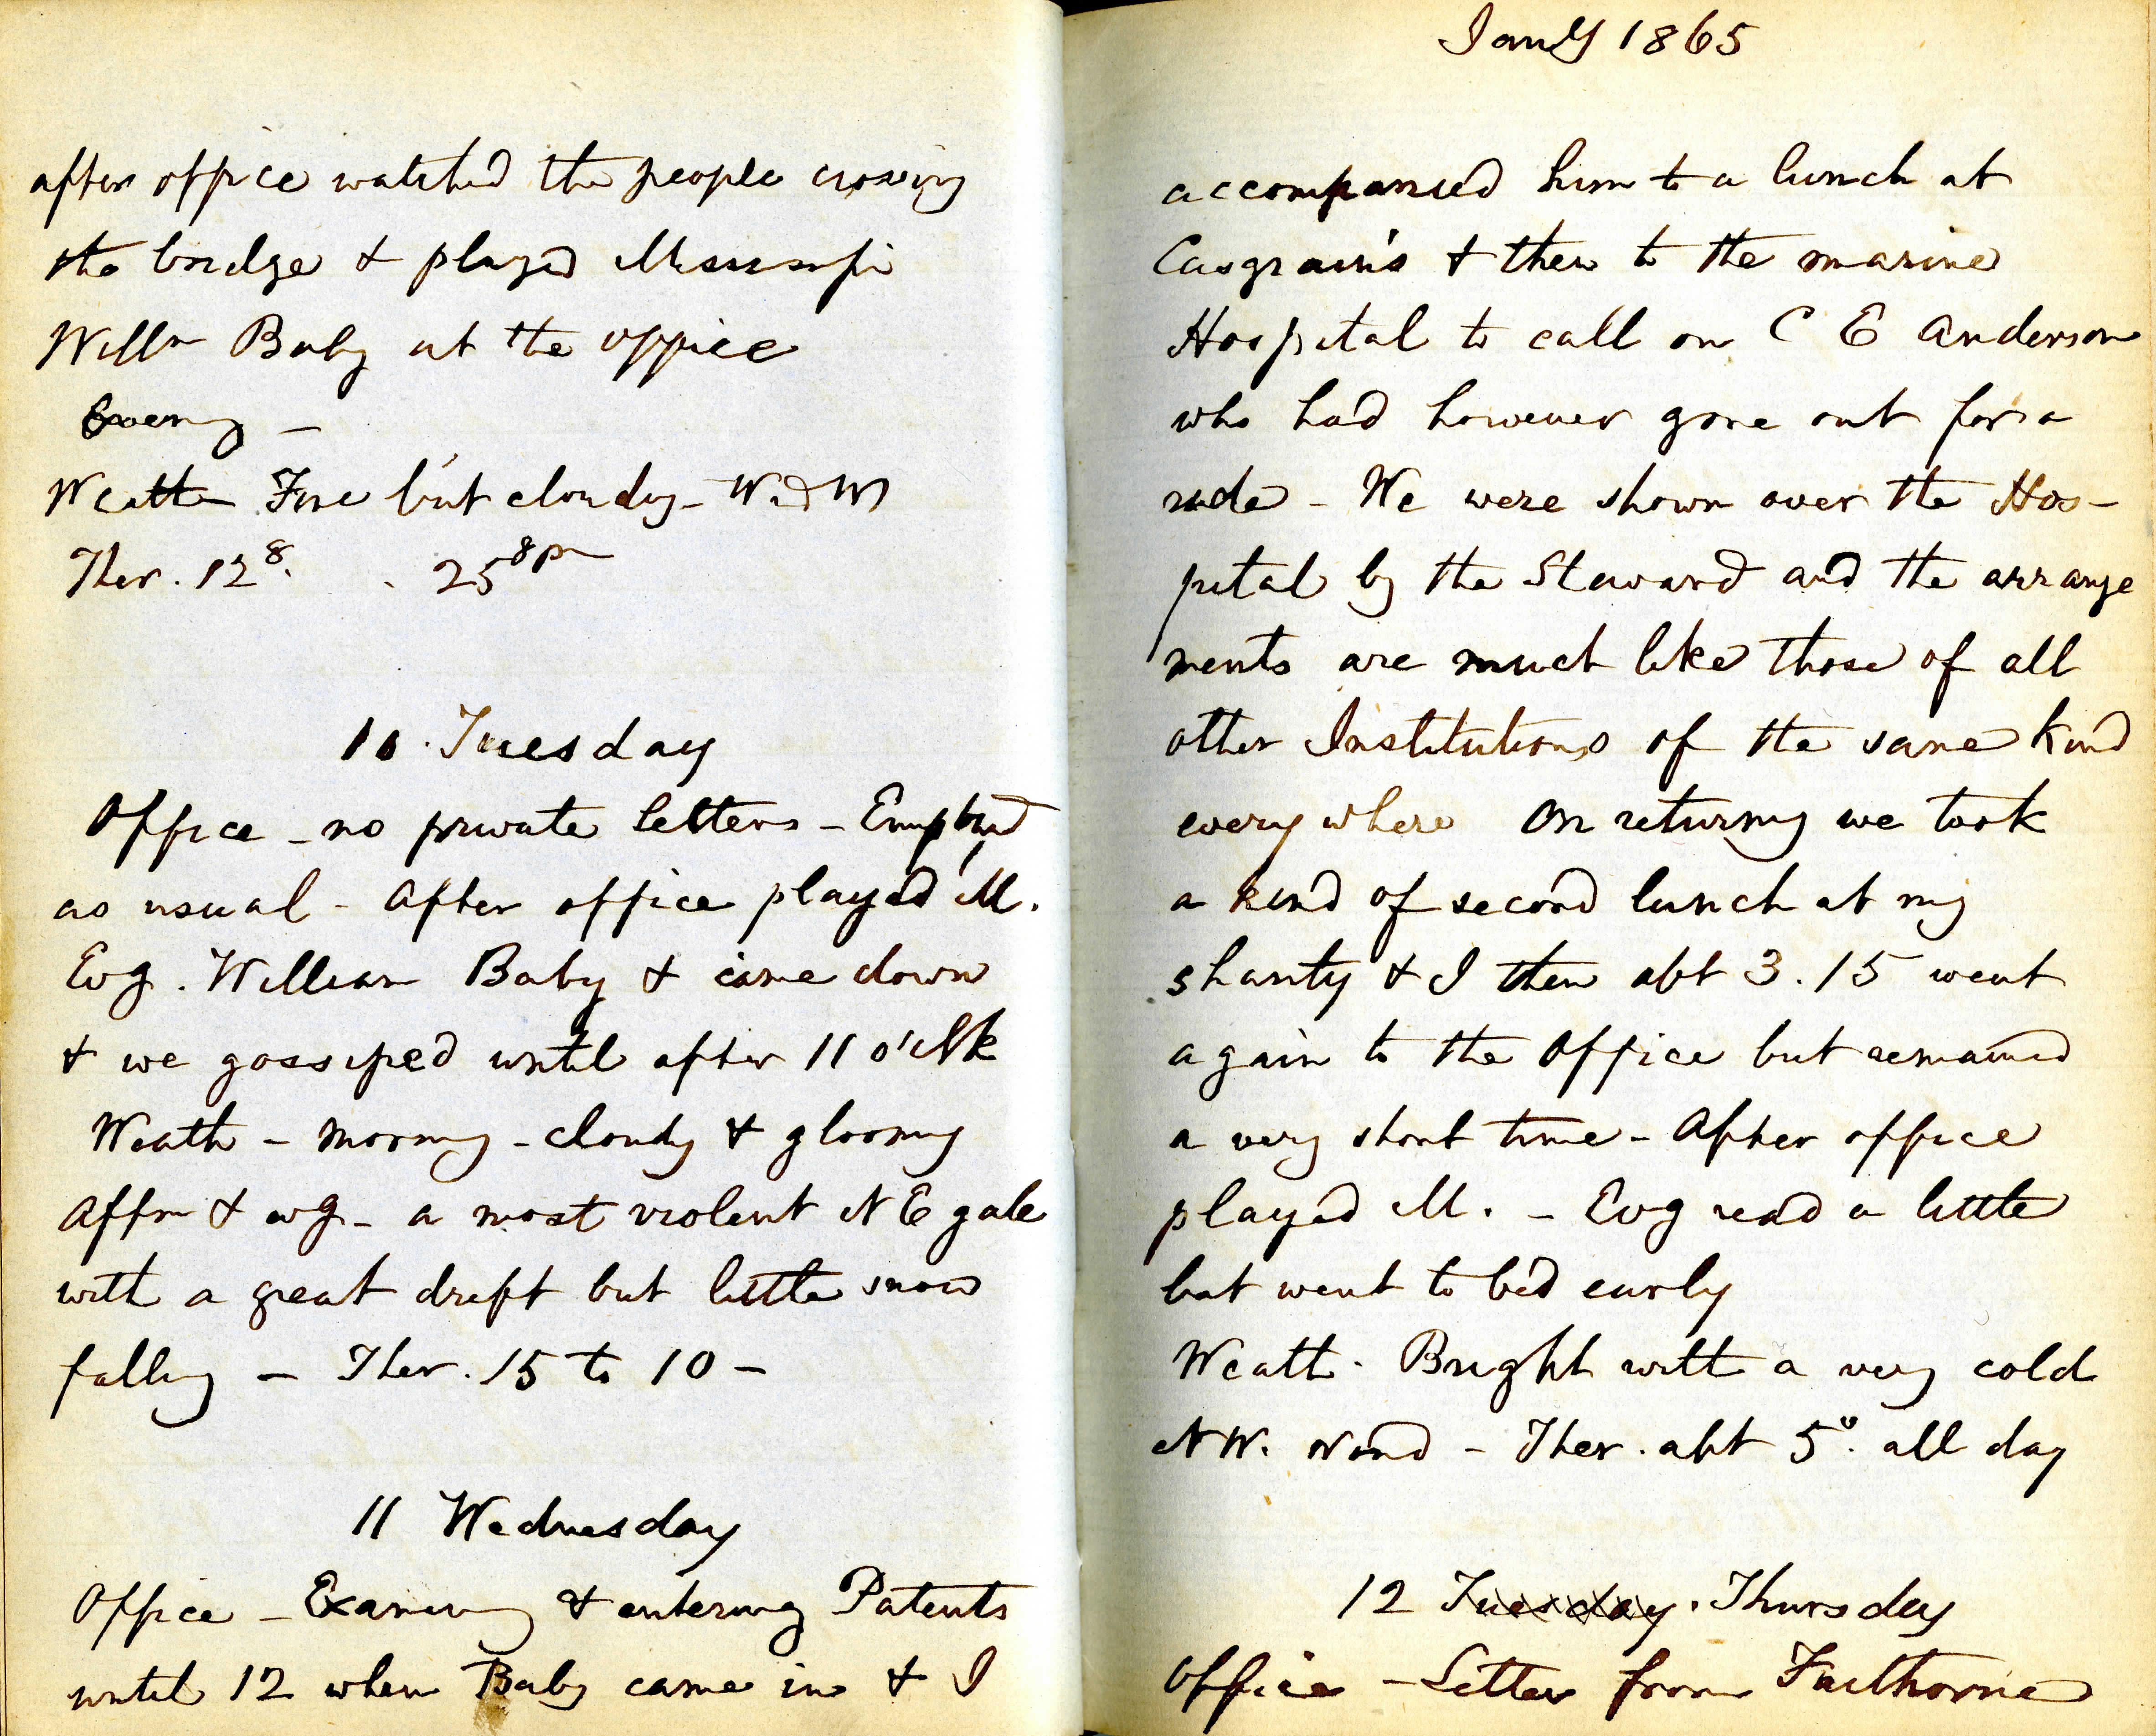 after office watched the people crossing
the bridge & played Mississipi
Willm Baby at the office
Evening –
Weather Fine but cloudy – Wind W
Ther. 12 8. . 25 8 pm
10 . Tuesday
Office – no private letters – Employed
as usual – After office played M.
Evg . William Baby & came down
& we gossiped until after 11 o'clk
Weath – morning – cloudy & gloomy
Aftn & evg – a most violent N E gale
with a great drift but little snow
falling – Ther . 15 to 10 –
11 Wednesday
Office – Examining & entering Patents
until 12 when Baby came in & I
Jany 1865
accompanied him to a lunch at
Casgrain's & then to the marine
Hospital to call on C E Anderson
who had however gone out for a
ride – We were shown over the Hos-
pital by the Steward and the arrange
ments are much like those of all
other Institutions of the same kind
every where On returning we took
a kind of second lunch at my
shanty & I then abt 3.15 went
again to the Office but remained
a very short time – After office
played M. – Evg read a little
but went to bed early
Weath . Bright with a very cold
N W. Wind – Ther . abt 5°. all day
12 Tuesday . Thursday
Office – Letter from Faithorne